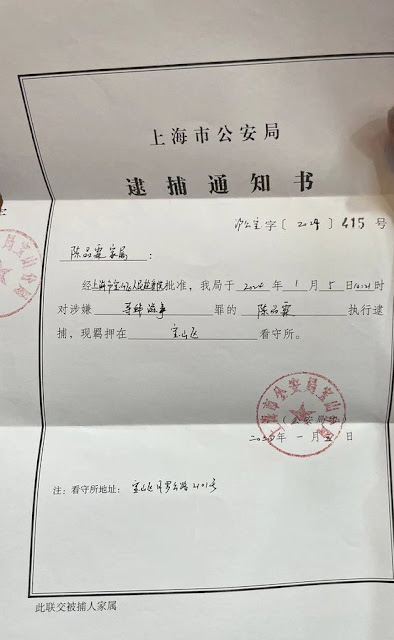 上海市公安局
逮捕通知书
沪公宝字〔2024〕415号
陈品霖家属：
经上海市宝山区人民检察院批准，我局于2024年1月5日16:21时
对涉嫌寻衅滋事罪的陈品霖执行逮
捕，现羁押在宝山区看守所。
（公安局印）
年一月五日
注：看守所地址：宝山区月罗公路2101号
此联交被捕人家属